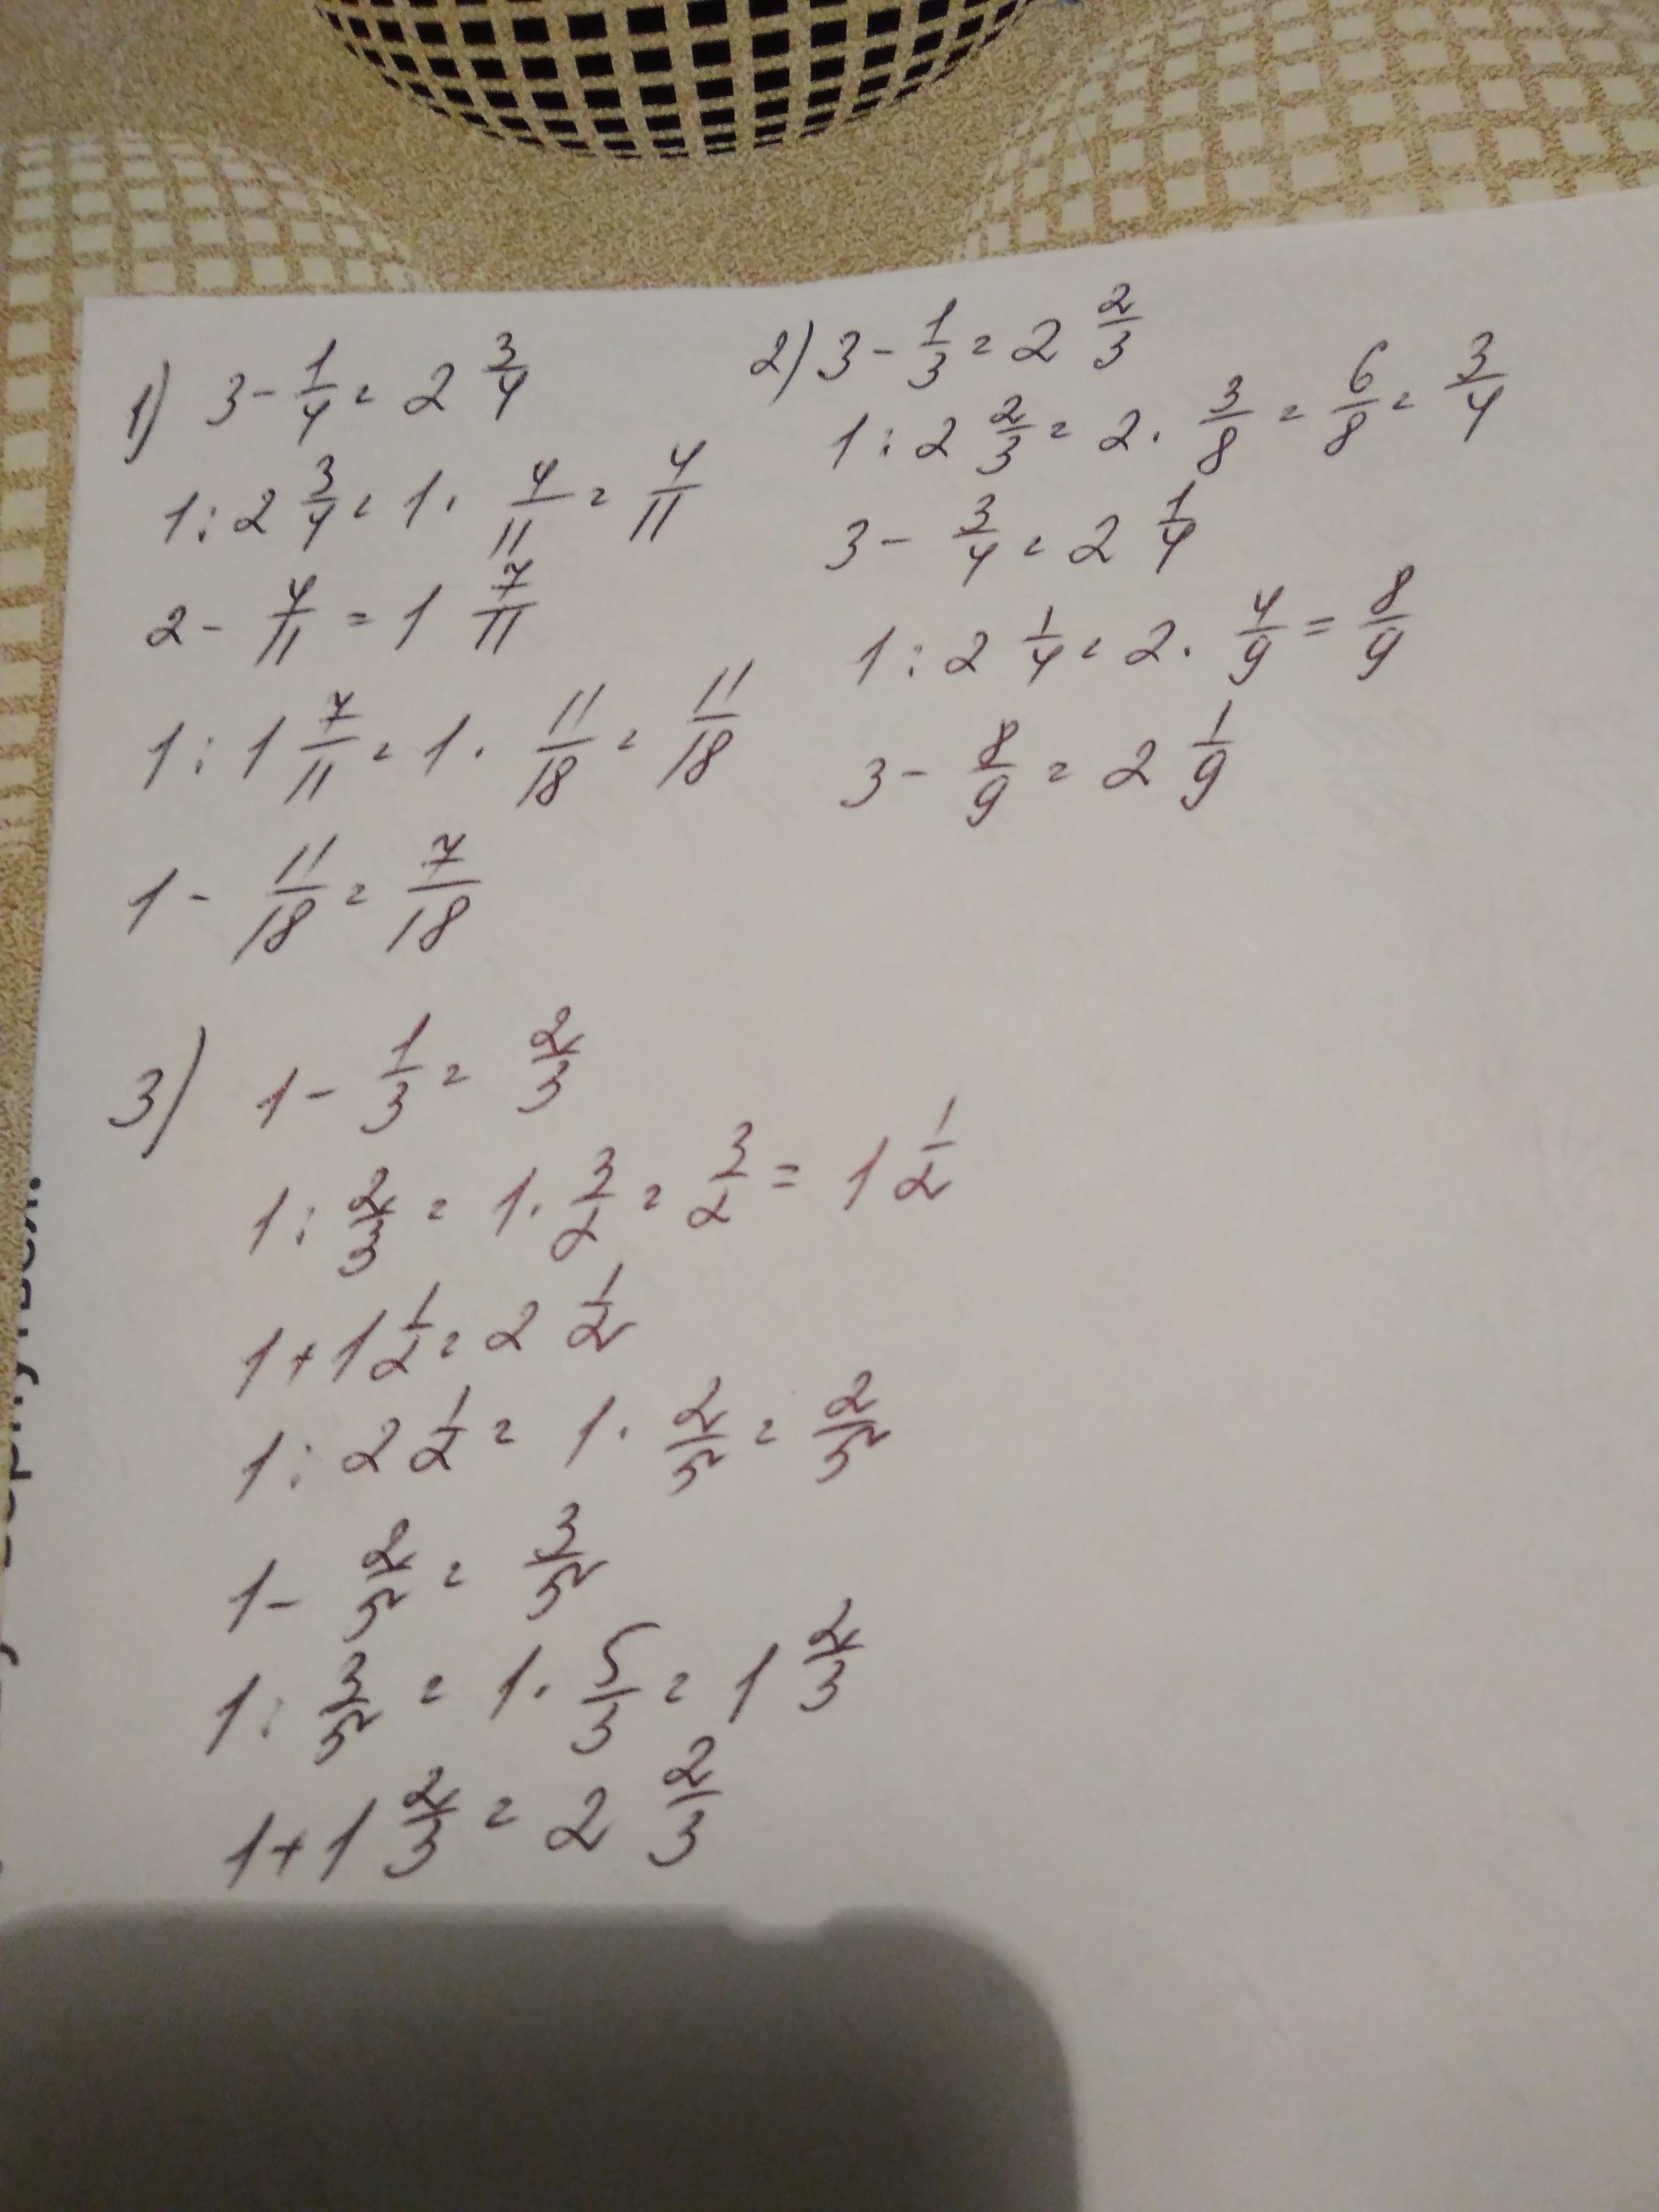 1) 3 - 1/4 = 2 3/4
1 : 2 3/4 = 1 · 4/11 = 4/11
2 - 4/11 = 1 7/11
1 : 1 7/11 = 1 · 11/18 = 11/18
1 - 11/18 = 7/18
2) 3 - 1/3 = 2 2/3
1 : 2 2/3 = 2 · 3/8 = 6/8 = 3/4
3 - 3/4 = 2 1/4
1 : 2 1/4 = 2 · 4/9 = 8/9
3 - 8/9 = 2 1/9
3) 1 - 1/3 = 2/3
1 : 2/3 = 1 · 3/2 = 3/2 = 1 1/2
1 + 1 1/2 = 2 1/2
1 : 2 1/2 = 1 · 2/5 = 2/5
1 - 2/5 = 3/5
1 : 3/5 = 1 · 5/3 = 1 2/3
1 + 1 2/3 = 2 2/3